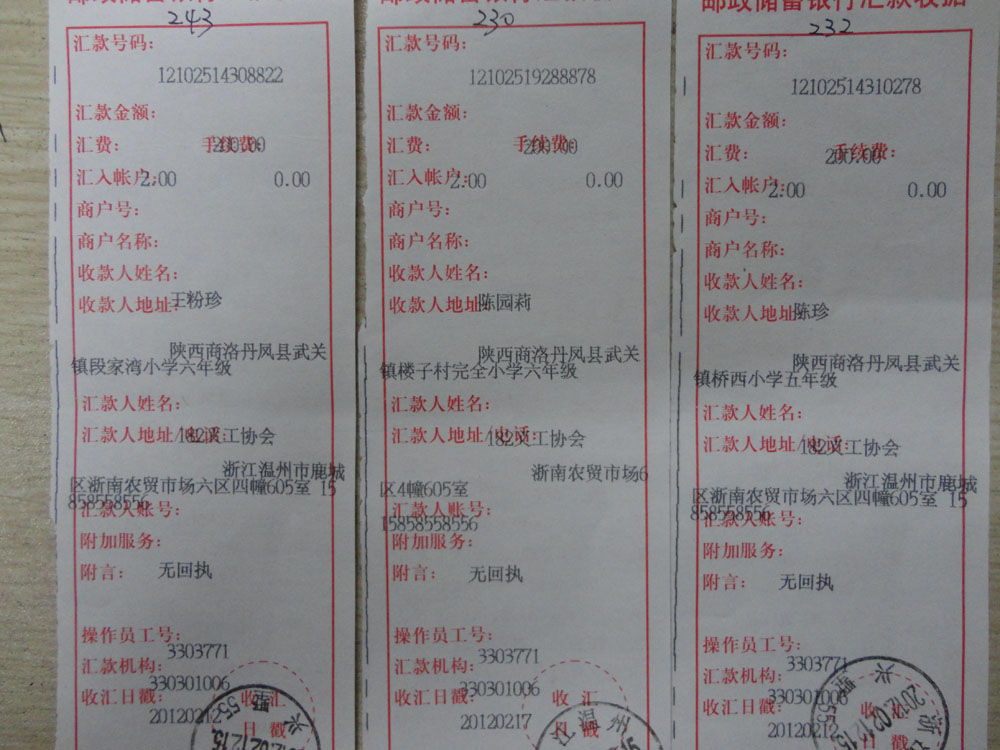 243
汇款号码：
12102514308822
汇款金额：
汇费： 手续费：
200.00
汇入帐户：
2.00 0.00
商户号：
商户名称：
收款人姓名：
收款人地址：
王粉珍
陕西商洛丹凤县武关
镇段家湾小学六年级
汇款人姓名：
汇款人地址/电话：
182义工协会
浙江温州市鹿城
区浙南农贸市场六区四幢605室 15
858558556
汇款人账号：
附加服务：
附言： 无回执
操作员工号：
3303771
汇款机构：
330301006
收汇日戳： 收汇
20120212 日戳
230
汇款号码：
12102519288878
汇款金额：
汇费： 手续费：
200.00
汇入帐户：
2.00 0.00
商户号：
商户名称：
收款人姓名：
收款人地址：
陈园莉
陕西商洛丹凤县武关
镇楼子村完全小学六年级
汇款人姓名：
汇款人地址/电话：
182义工协会
浙南农贸市场6
区4幢605室
15858558556
汇款人账号：
附加服务：
附言： 无回执
操作员工号：
3303771
汇款机构：
330301006
收汇日戳： 收汇
20120217 日戳
温州
邮政储蓄银行汇款收据
232
汇款号码：
12102514310278
汇款金额：
汇费： 手续费：
200.00
汇入帐户：
2.00 0.00
商户号：
商户名称：
收款人姓名：
收款人地址：
陈珍
陕西商洛丹凤县武关
镇桥西小学五年级
汇款人姓名：
汇款人地址/电话：
182义工协会
浙江温州市鹿城
区浙南农贸市场六区四幢605室 15
858558556
汇款人账号：
附加服务：
附言： 无回执
操作员工号：
3303771
汇款机构：
330301006
收汇日戳：
20120212 日戳